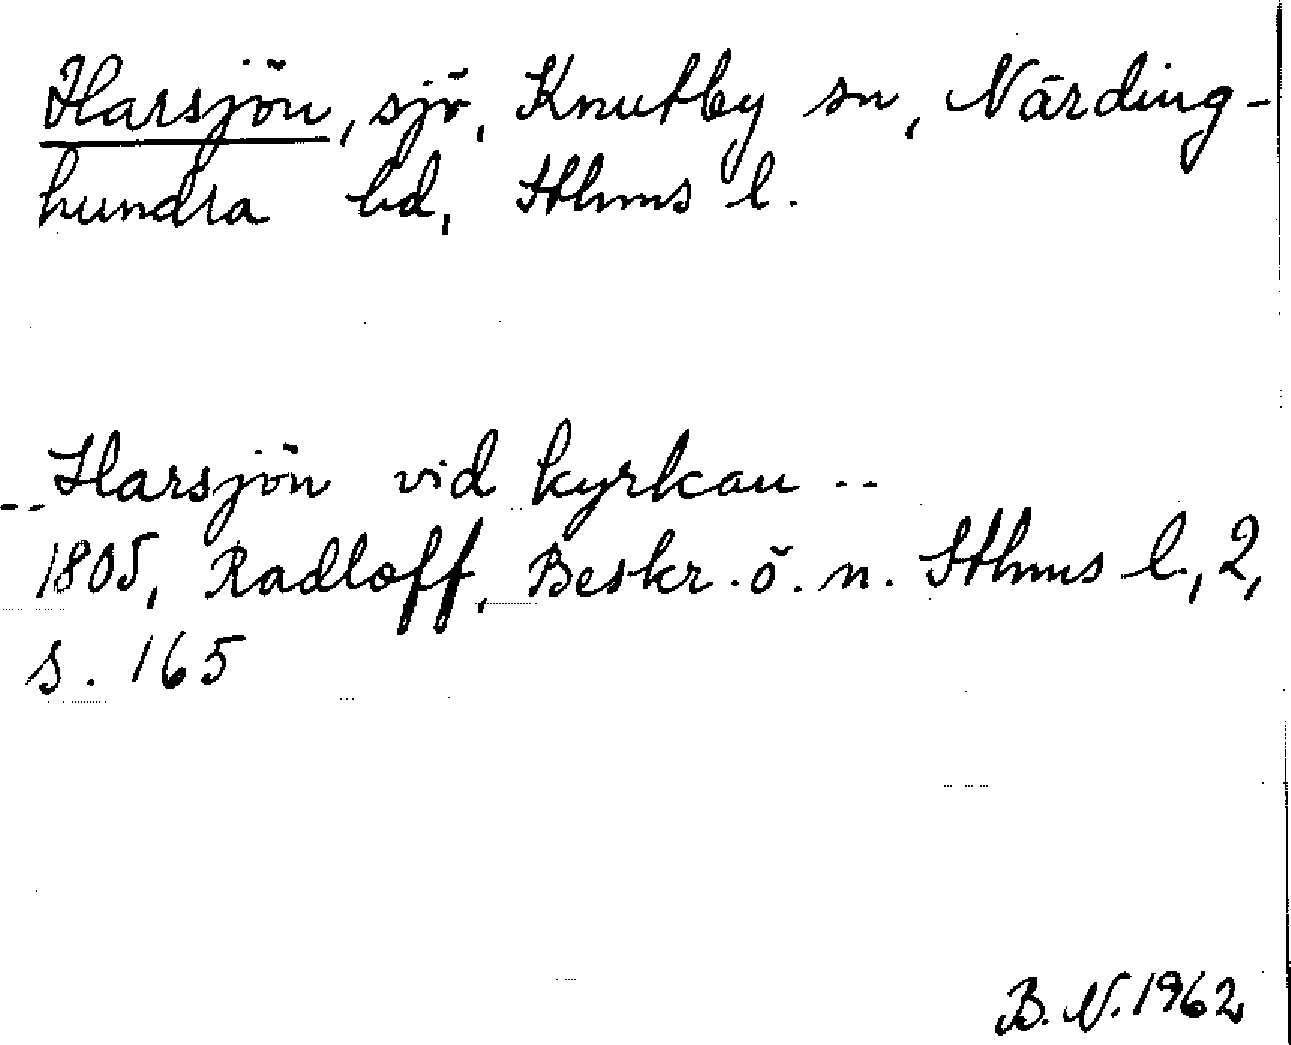 Harsjön, sjö, Knutby sn, Närding-
hundra hd, Sthms l.
-- Harsjön vid kyrkan --
1805, Radloff, Beskr. ö. n. Sthms l., 2,
s. 165
B. N. 1962